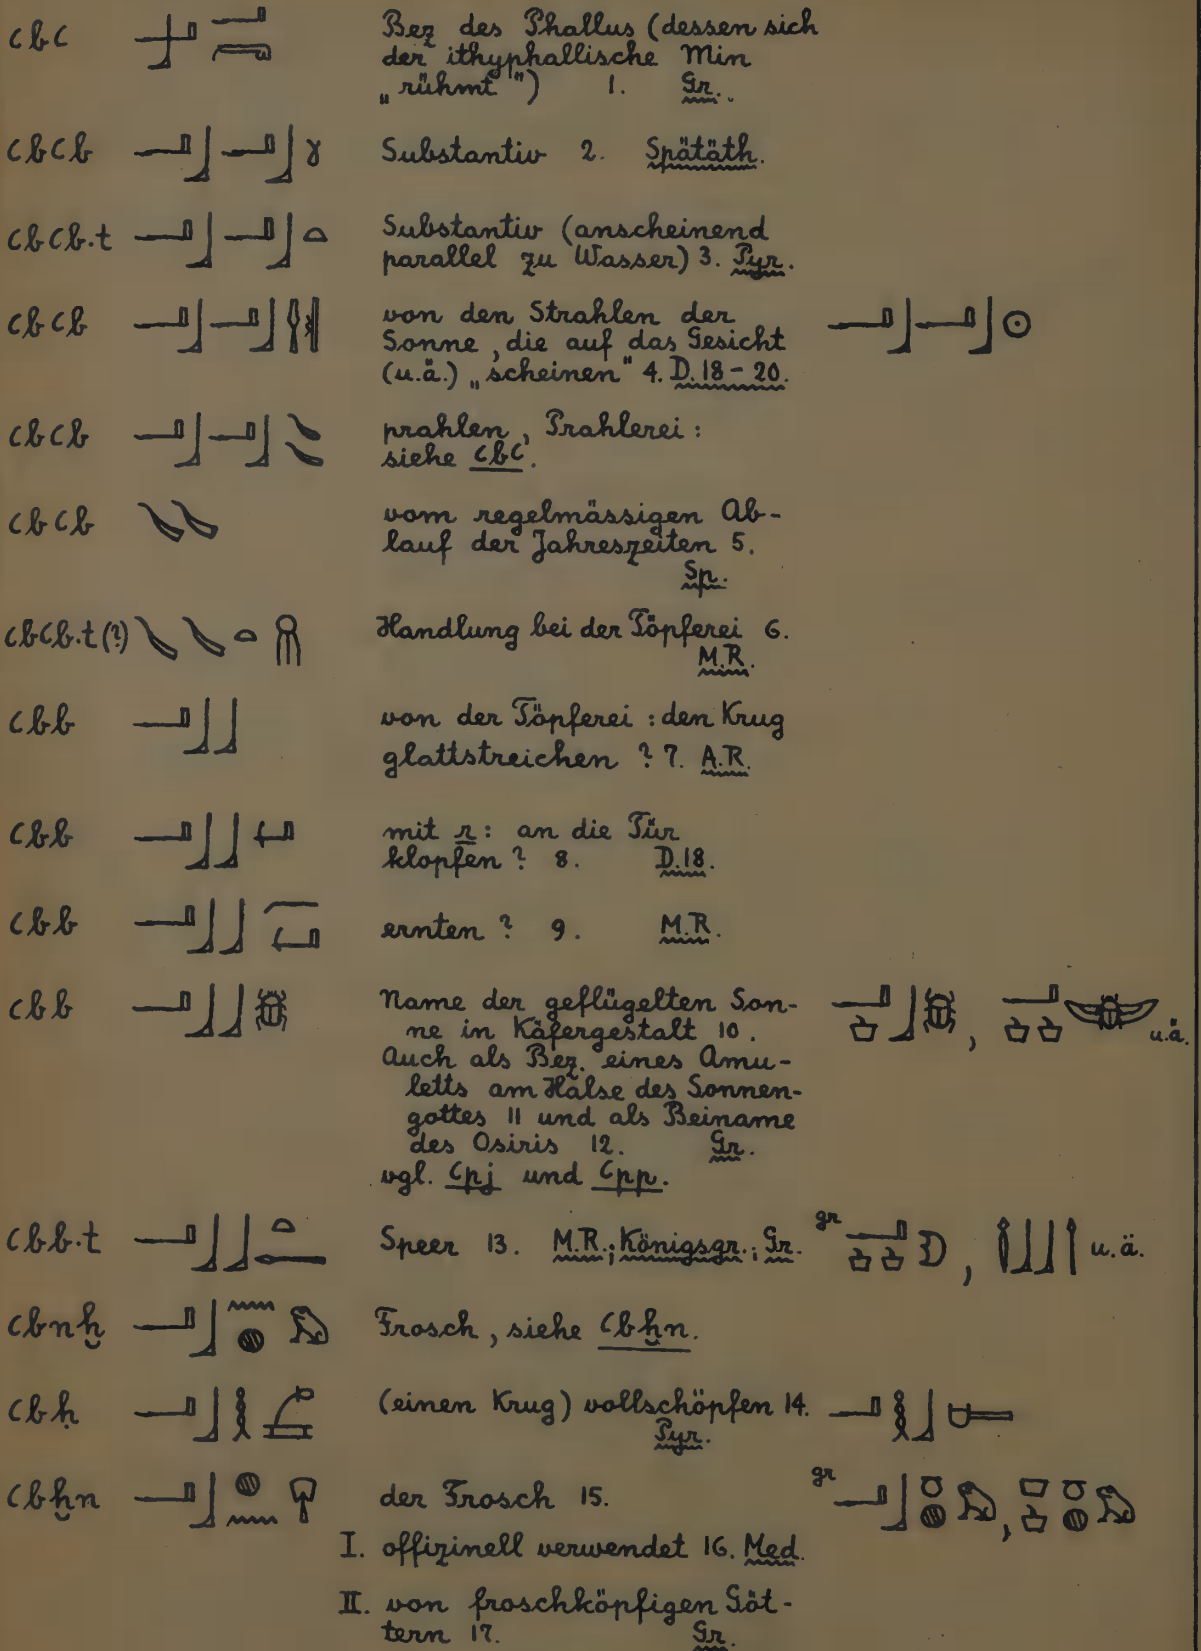 ꜥbꜥ Bez des Phallus (dessen sich
der ithyphallische Min
„rühmt") 1. Gr.
ꜥbꜥb Substantiv 2. Spätäth.
ꜥbꜥb.t Substantiv (anscheinend
parallel zu Wasser) 3. Pyr.
ꜥbꜥb von den Strahlen der
Sonne, die auf das Gesicht
(u.ä.) „scheinen" 4. D. 18 - 20.
ꜥbꜥb prahlen, Prahlerei:
siehe ꜥbꜥ.
ꜥbꜥb vom regelmässigen Ab-
lauf der Jahreszeiten 5.
Sp.
ꜥbꜥb.t (?) Handlung bei der Töpferei 6.
M.R.
ꜥbb von der Töpferei: den Krug
glattstreichen ? 7. A.R.
ꜥbb mit r: an die Tür
klopfen ? 8. D.18.
ꜥbb ernten ? 9. M.R.
ꜥbb Name der geflügelten Son-
ne in Käfergestalt 10. , u.ä.
Auch als Bez. eines Amu-
letts am Halse des Sonnen-
gottes 11 und als Beiname
des Osiris 12. Gr.
vgl. ꜥpj und ꜥpp.
ꜥbb.t Speer 13. M.R.; Königsgr.; Gr. gr , u.ä.
ꜥbnḫ Frosch, siehe ꜥbḫn.
ꜥbḥ (einen Krug) vollschöpfen 14.
Pyr.
ꜥbḫn der Frosch 15. gr ,
I. offizinell verwendet 16. Med.
II. von froschköpfigen Göt-
tern 17. Gr.